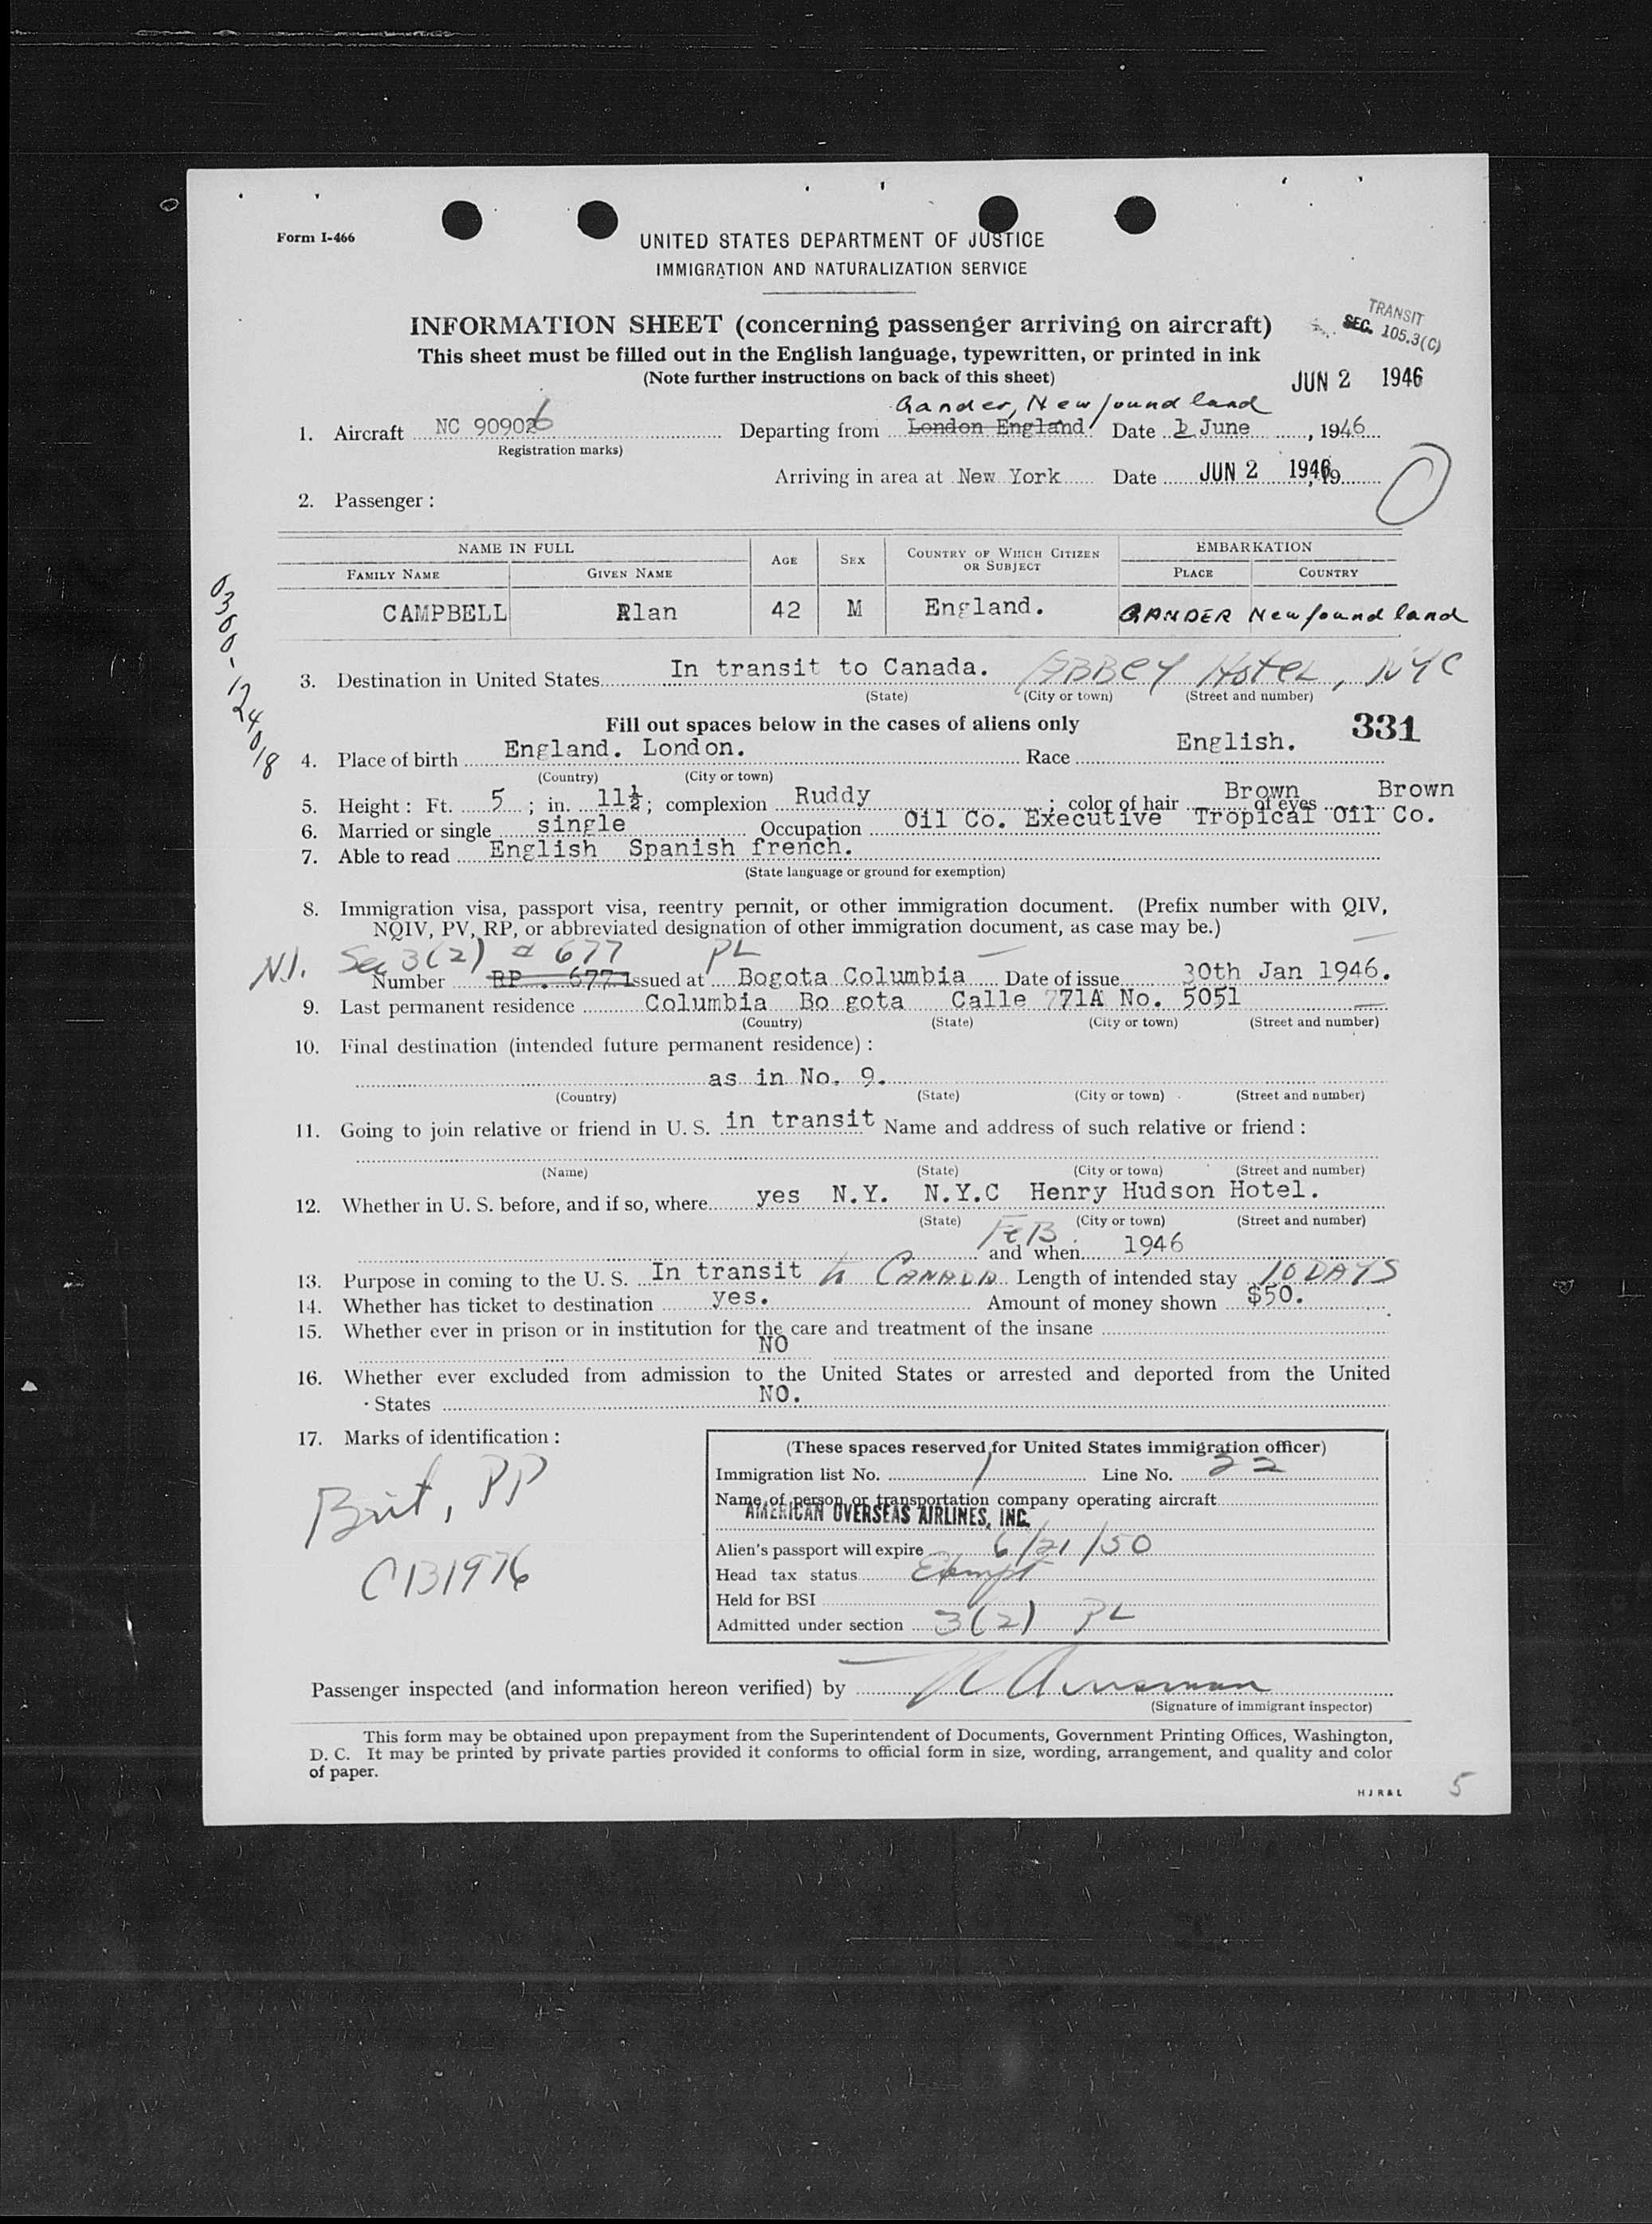 Form I-466
UNITED STATES DEPARTMENT OF JUSTICE
IMMIGRATION AND NATURALIZATION SERVICE
INFORMATION SHEET (concerning passenger arriving on aircraft)
TRANSIT
SEC. 105.3(C)
This sheet must be filled out in the English language, typewritten, or printed in ink
(Note further instructions on back of this sheet)
JUN 2 1946
Gander, Newfoundland
1. Aircraft NC 90906 Departing from London England Date 2 June, 1946
(Registration marks)
Arriving in area at New York Date JUN 2 1946, 19
2. Passenger:
NAME IN FULL AGE SEX COUNTRY OF WHICH CITIZEN OR SUBJECT EMBARKATION
FAMILY NAME GIVEN NAME PLACE COUNTRY
CAMPBELL Alan 42 M England. GANDER Newfoundland
0300-124018
3. Destination in United States In transit to Canada. ABBEY HOTEL, NYC
(State) (City or town) (Street and number)
Fill out spaces below in the cases of aliens only
331
4. Place of birth England. London. Race English.
(Country) (City or town)
5. Height: Ft. 5; in. 11½; complexion Ruddy; color of hair Brown of eyes Brown
6. Married or single single Occupation Oil Co. Executive Tropical Oil Co.
7. Able to read English Spanish french.
(State language or ground for exemption)
8. Immigration visa, passport visa, reentry permit, or other immigration document. (Prefix number with QIV,
NQIV, PV, RP, or abbreviated designation of other immigration document, as case may be.)
N.I. Sec 3(2) # 677 PL
Number RP . 677 Issued at Bogota Columbia Date of issue 30th Jan 1946.
9. Last permanent residence Columbia Bo gota Calle 771A No. 5051
(Country) (State) (City or town) (Street and number)
10. Final destination (intended future permanent residence):
as in No. 9.
(Country) (State) (City or town) (Street and number)
11. Going to join relative or friend in U. S. in transit Name and address of such relative or friend:
(Name) (State) (City or town) (Street and number)
12. Whether in U. S. before, and if so, where yes N.Y. N.Y.C Henry Hudson Hotel.
(State) (City or town) (Street and number)
FEB.
and when 1946
13. Purpose in coming to the U. S. In transit to CANADA Length of intended stay 10 DAYS
14. Whether has ticket to destination yes. Amount of money shown $50.
15. Whether ever in prison or in institution for the care and treatment of the insane
NO
16. Whether ever excluded from admission to the United States or arrested and deported from the United
States NO.
17. Marks of identification:
Brit, PP
C131976
(These spaces reserved for United States immigration officer)
Immigration list No. 1 Line No. 22
Name of person or transportation company operating aircraft
AMERICAN OVERSEAS AIRLINES, INC.
Alien's passport will expire 6/21/50
Head tax status Exempt
Held for BSI
Admitted under section 3(2) PL
Passenger inspected (and information hereon verified) by
(Signature of immigrant inspector)
This form may be obtained upon prepayment from the Superintendent of Documents, Government Printing Offices, Washington,
D. C. It may be printed by private parties provided it conforms to official form in size, wording, arrangement, and quality and color
of paper.
HJR&L
5